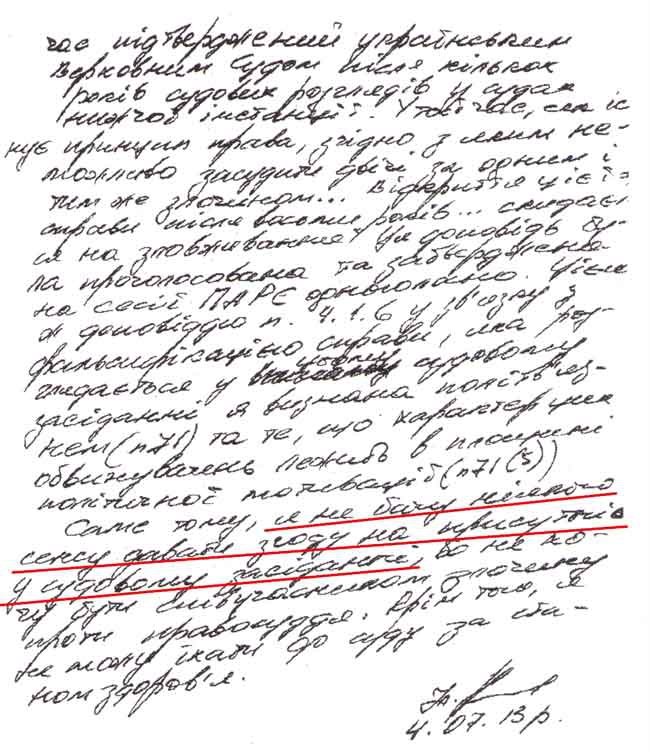 час підтверджений українським
Верховним Судом після кількох
років судових розглядів у судах
нижчої інстанції. У той час, як іс
нує принцип права, згідно з яким не-
можливо засудити двічі за одним і
тим же злочином... Відкриття цієї
справи після восьми років... скидаєт
ся на зловживання" Ця доповідь бу-
ла проголосована та затверджена
на сесії ПАРЄ одноголосно. Цією
ж доповіддю п. 4.1.6 у зв'язку з
фальсифікацією справи, яка роз-
глядається у цьому судовому
засіданні я визнана політв'яз-
нем (п71) та те, що характер цих
обвинувачень лежить в площині
політичної мотивації (п71(5))
Саме тому, я не бачу ніякого
сенсу давати згоду на присутність
у судовому засіданні, бо не хо-
чу бути співучасником злочину
проти правосуддя. Крім того, я
не можу їхати до суду за ста-
ном здоров'я.
4.07.13р.